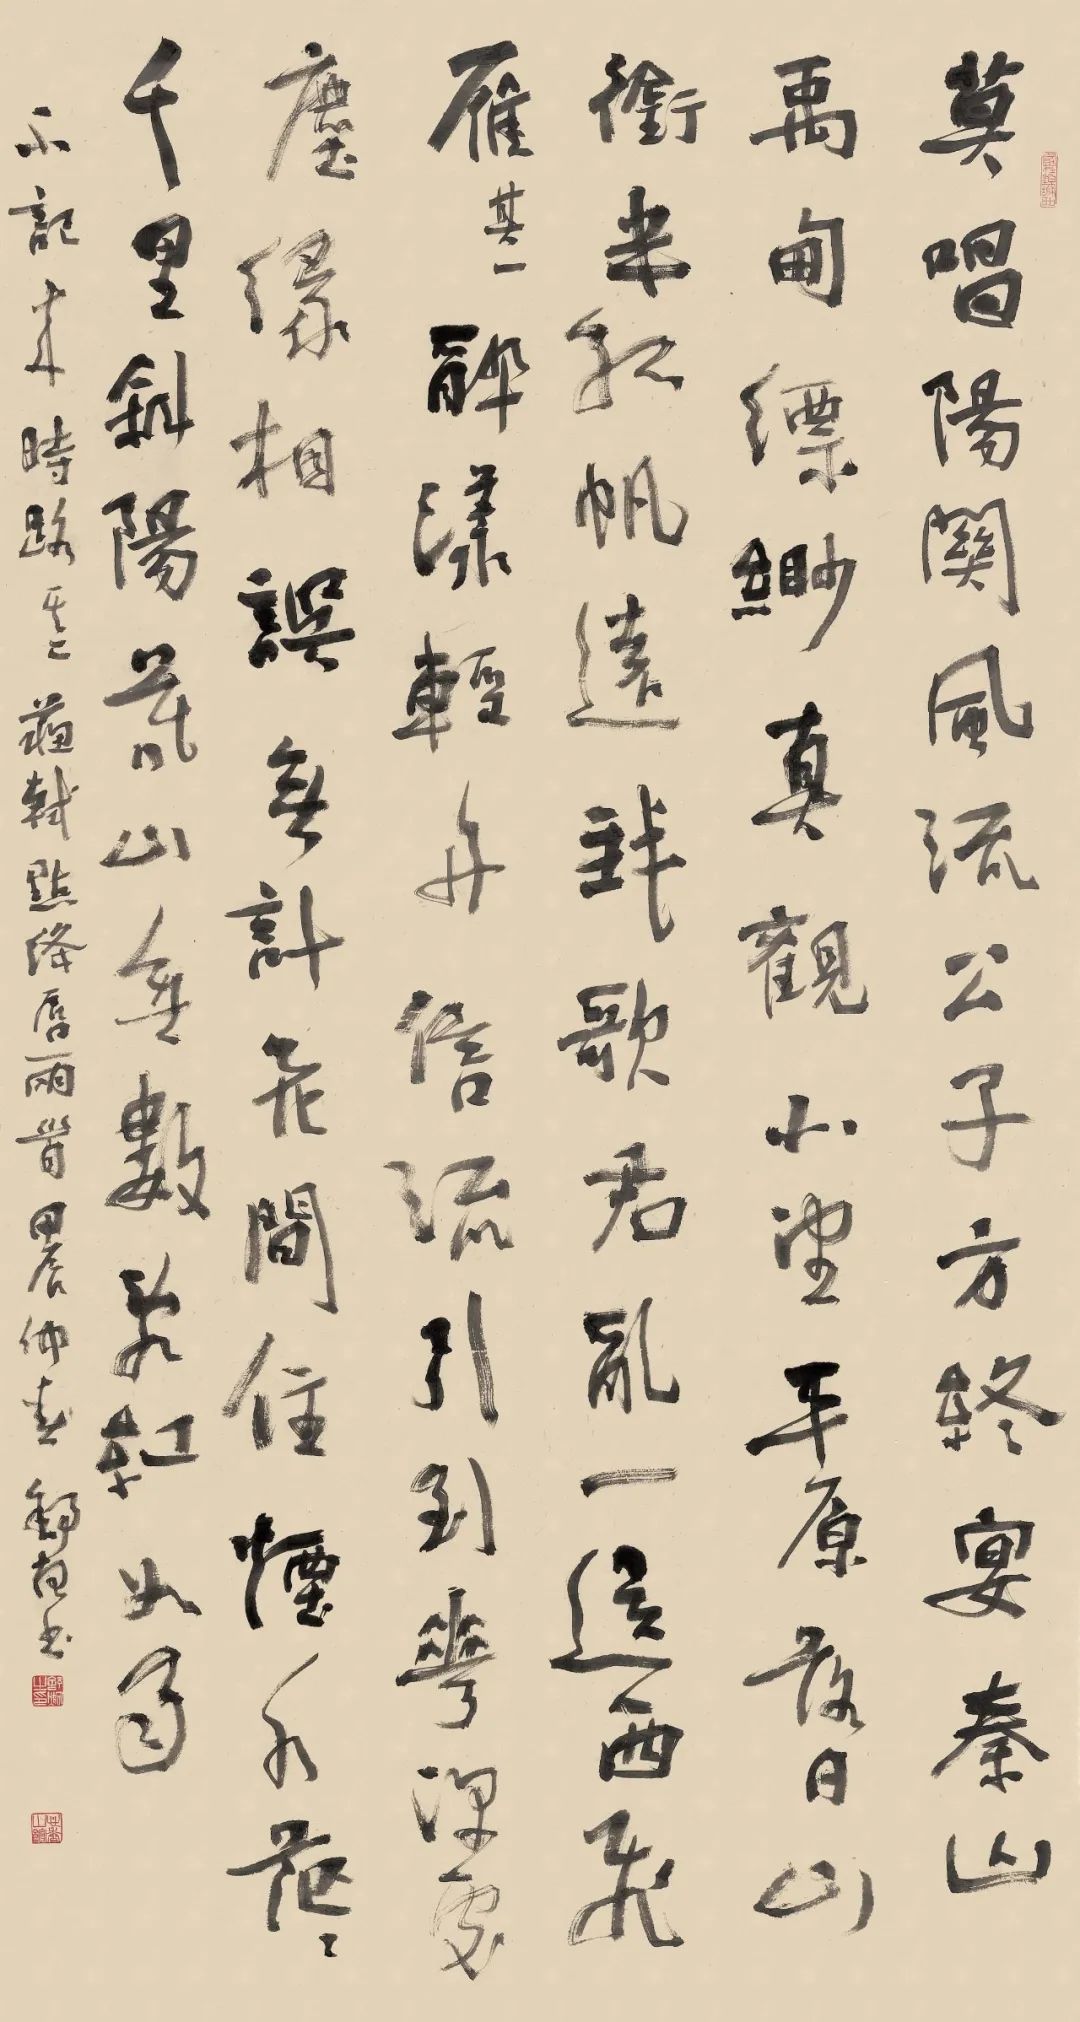 莫唱陽關風流公子方終宴秦山
禹甸縹緲真觀北望平原落日山
銜半孤帆遠我歌君亂一送西飛
雁其一醉漾輕舟信流引到華深處
塵緣相誤無計花間住煙水茫茫
千里斜陽暮山無數亂紅如雨
不記來時路其二蘇軾點絳唇兩首甲辰仲春書